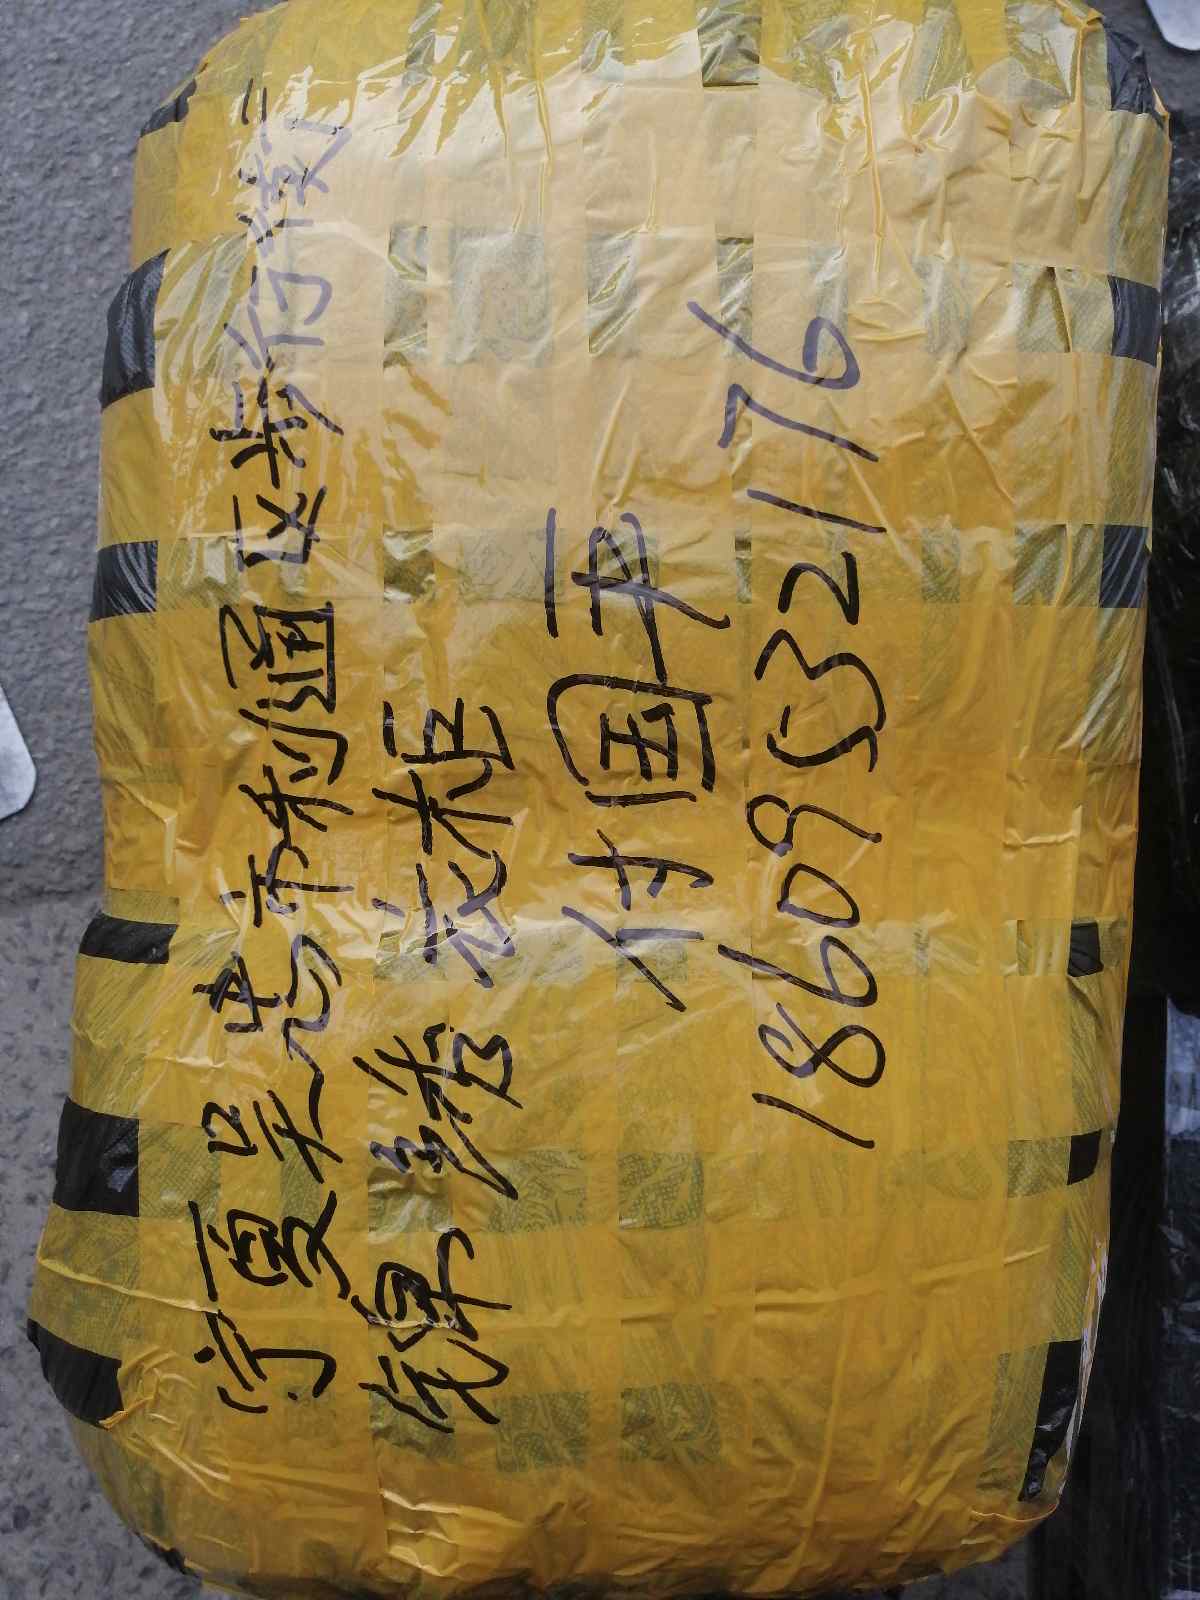 宁夏吴忠市利通区步行街
锦绣衣柜
付国平
18609532176